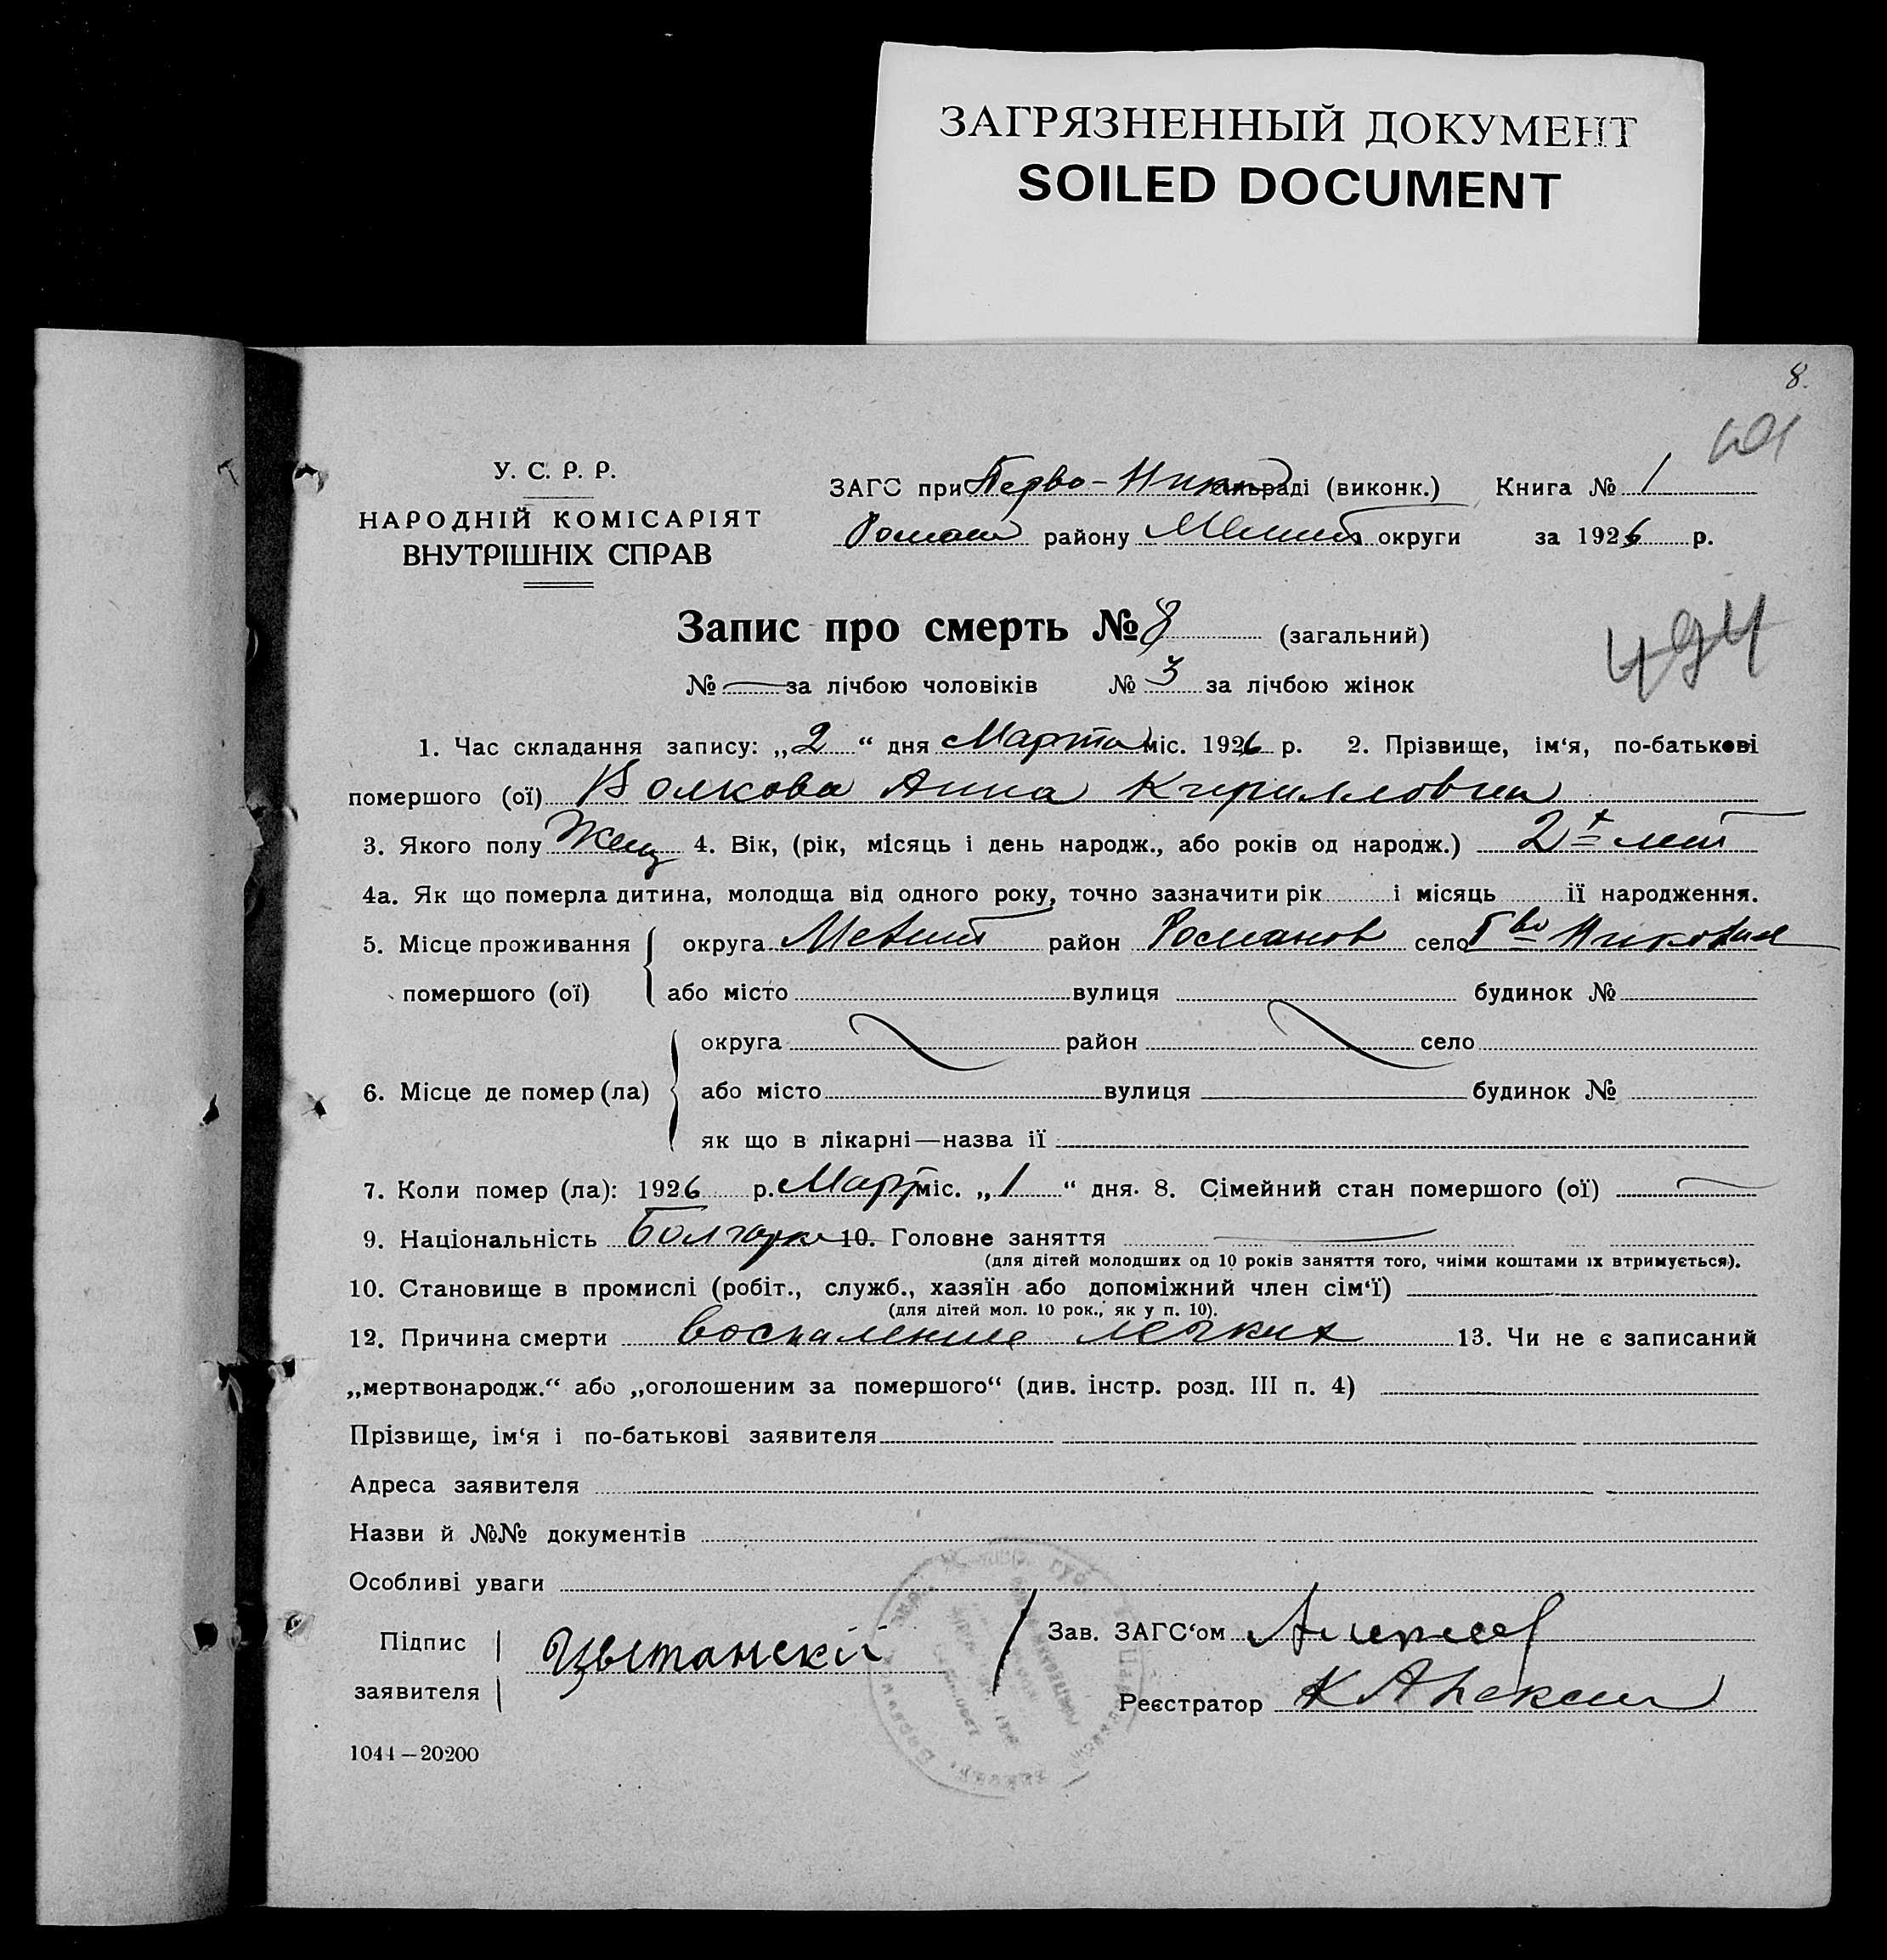 ЗАГРЯЗНЕННЫЙ ДОКУМЕНТ
SOILED DOCUMENT
8.
У. С. Р. Р.
НАРОДНІЙ КОМІСАРІЯТ
ВНУТРІШНІХ СПРАВ
ЗАГС при Перво-Ник сільраді (виконк.) Книга № 1
Роман району Мелит округи за 1926 р.
Запис про смерть № 8 (загальний)
494
№ — за лічбою чоловіків № 3 за лічбою жінок
1. Час складання запису: „2“ дня Марта міс. 1926 р. 2. Прізвище, ім‘я, по-батькові
помершого (ої) Волкова Анна Кирилловна
3. Якого полу Жен 4. Вік, (рік, місяць і день народж., або років од народж.) 2х лет
4а. Як що померла дитина, молодща від одного року, точно зазначити рік і місяць ії народження.
5. Місце проживання округа Мелит район Романов село
помершого (ої) або місто вулиця будинок №
округа район село
6. Місце де помер (ла) або місто вулиця будинок №
як що в лікарні—назва ії
7. Коли помер (ла): 1926 р. Март міс. „1“ дня. 8. Сімейний стан помершого (ої) —
9. Національність Болгарка 10. Головне заняття —
(для дітей молодших од 10 років заняття того, чиїми коштами іх втримується).
10. Становище в промислі (робіт., служб., хазяїн або допоміжний член сім‘ї)
(для дітей мол. 10 рок., як у п. 10).
12. Причина смерти воспаление легких 13. Чи не є записаний
„мертвонародж.“ або „оголошеним за помершого“ (див. інстр. розд. III п. 4)
Прізвище, ім‘я і по-батькові заявителя
Адреса заявителя
Назви й №№ документів
Особливі уваги
Підпис
заявителя
Зав. ЗАГС‘ом
Реєстратор
1044—20200